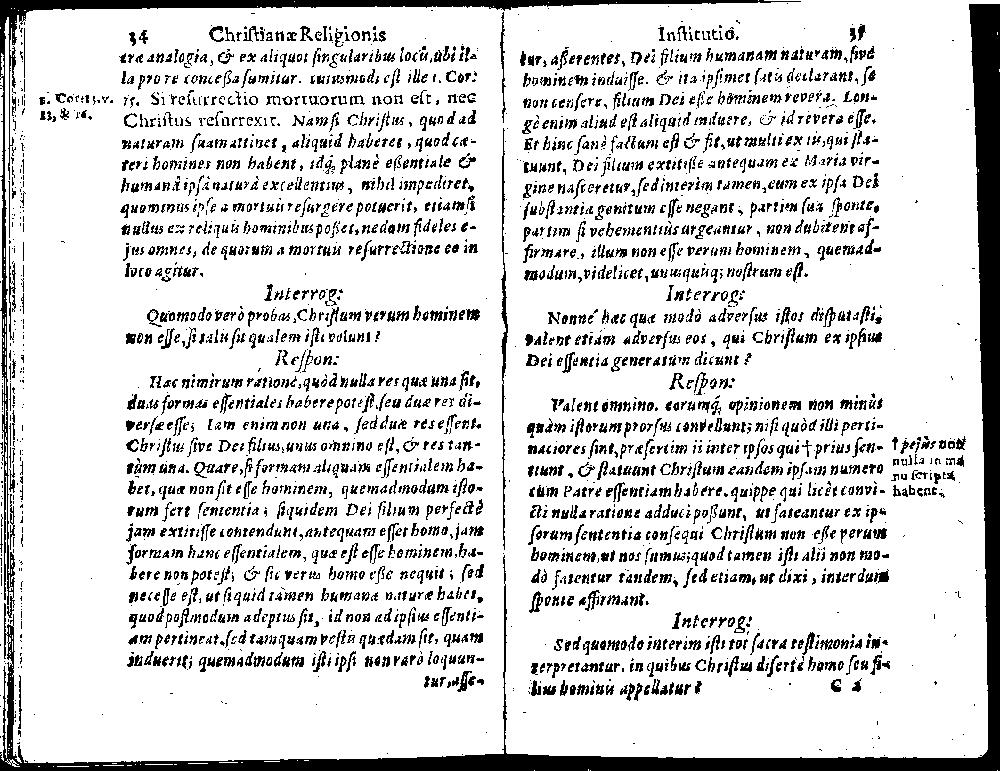 34 Christianæ Religionis
træ analogia, & ex aliquot singularibus locis, ubi illa
la pro re concessa sumitur. cuiusmodi est ille 1. Cor:
15. Si resurrectio mortuorum non est, nec
1. Cor: 15. v.
13, & 16.
Christus resurrexit. Nam si Christus, quod ad
naturam suam attinet, aliquid haberet, quod cæ-
teri homines non habent, idq; planè essentiale &
humanâ ipsâ naturâ excellentius, nihil impediret,
quominus ipse a mortuis resurgere potuerit, etiamsi
nullus ex reliquis hominibus posset, nedum fideles e-
jus omnes, de quorum a mortuis resurrectione eo in
loco agitur.
Interrog:
Quomodo verò probas, Christum verum hominem
non esse, si talis sit qualem isti volunt?
Respon:
Hac nimirum ratione, quòd nulla res quæ una sit,
duas formas essentiales habere potest, seu duæ res di-
versæ esse; Iam enim non una, sed duæ res essent.
Christus sive Dei filius, unus omnino est, & res tan-
tùm una. Quare, si formam aliquam essentialem ha-
bet, quæ non sit esse hominem, quemadmodum isto-
rum fert sententia; siquidem Dei filium perfectè
jam extitisse contendunt, antequam esset homo, jam
formam hanc essentialem, quæ est esse hominem, ha-
bere non potest; & sic verus homo esse nequit; sed
necesse est, ut si quid tamen humanæ naturæ habet,
quod postmodum adeptus sit, id non ad ipsius essenti-
am pertineat, sed tamquam vestis quædam sit, quam
induerit; quemadmodum isti ipsi non rarò loquun-
tur, asse-
Institutio. 35
tur, asserentes, Dei filium humanam naturam, sive
hominem induisse. & ita ipsimet satis declarant, se
non censere, filium Dei esse hominem revera. Lon-
gè enim aliud est aliquid induere, & id revera esse.
Et hinc sanè factum est & fit, ut multi ex iis, qui sta-
tuunt, Dei filium extitisse antequam ex Maria vir-
gine nasceretur, sed interim tamen, eum ex ipsa Dei
substantia genitum esse negant, partim sua sponte,
partim si vehementius urgeantur, non dubitent af-
firmare, illum non esse verum hominem, quemad-
modum, videlicet, unusquisq; nostrum est.
Interrog:
Nonné hæc quæ modò adversus istos disputasti,
valent etiam adversus eos, qui Christum ex ipsius
Dei essentia generatum dicunt?
Respon:
Valent omnino. eorumq; opinionem non minùs
quàm istorum prorsus convellunt; nisi quòd illi perti-
naciores sint, præsertim ii inter ipsos qui † prius sen-
tiunt, & statuunt Christum eandem ipsam numero
cum Patre essentiam habere. quippe qui licèt convi-
† pejus non
nulla in ma
nuscripta
habent.
cti nulla ratione adduci possunt, ut fateantur ex ip-
sorum sententia consequi Christum non esse verum
hominem, ut nos sumus; quod tamen isti alii non mo-
dò fatentur tandem, sed etiam, ut dixi, interdum
sponte affirmant.
Interrog:
Sed quomodo interim isti tot sacra testimonia in-
terpretantur, in quibus Christus disertè homo seu fi-
lius hominis appellatur?
C 2